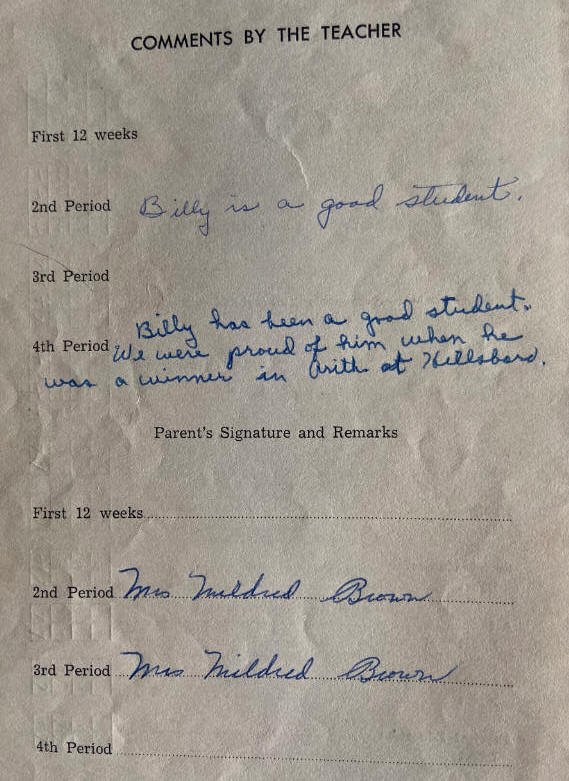 COMMENTS BY THE TEACHER
First 12 weeks
2nd Period Billy is a good student.
3rd Period
Billy has been a good student.
4th Period We were proud of him when he
was a winner in Arith at Hillsboro.
Parent's Signature and Remarks
First 12 weeks
2nd Period Mrs Mildred Brown
3rd Period Mrs Mildred Brown
4th Period